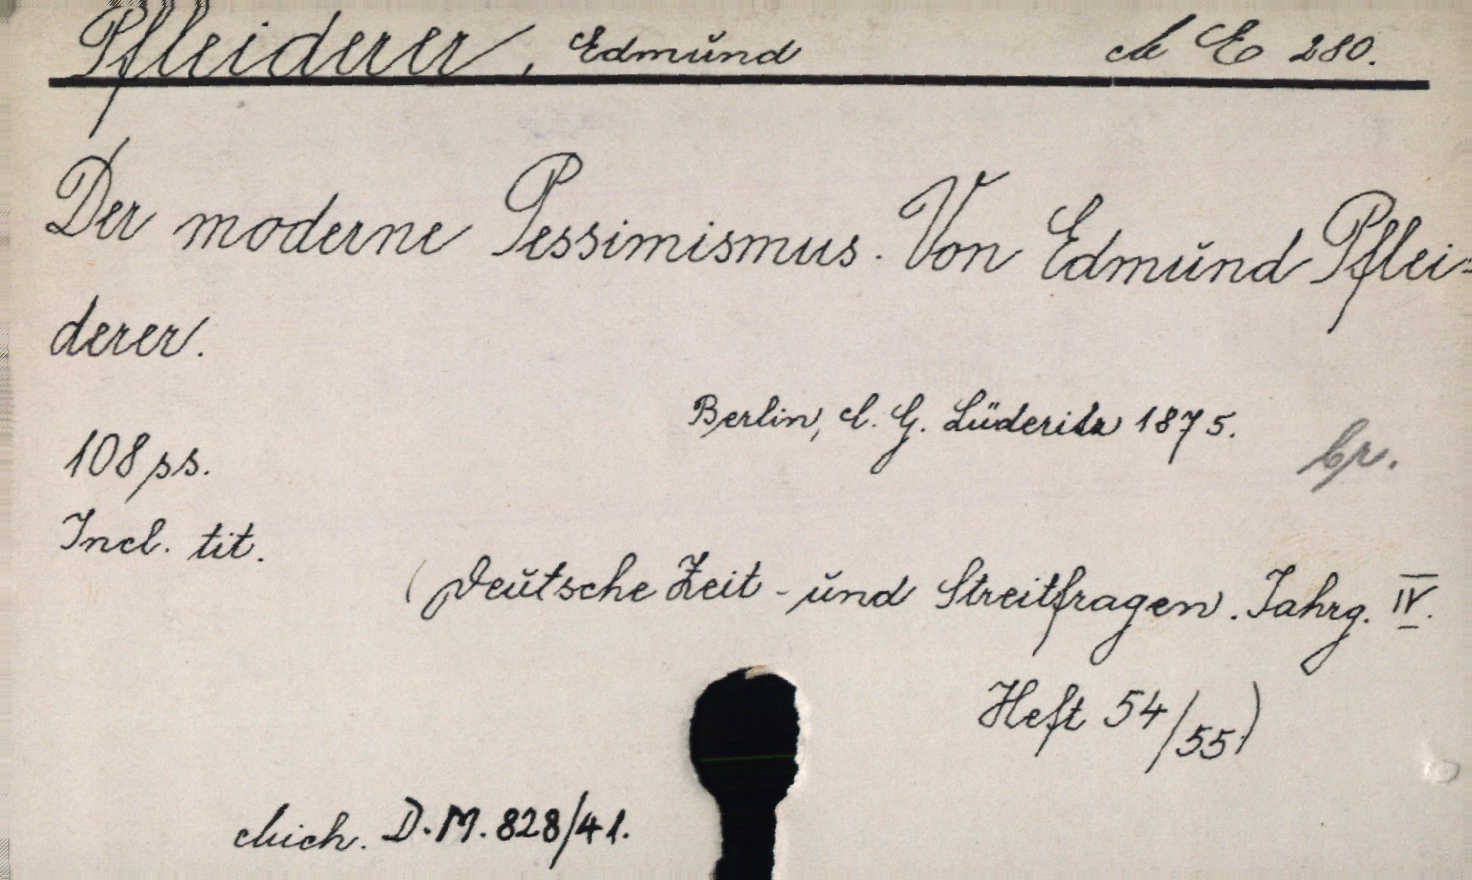 Pfleiderer, Edmund E 280.
Der moderne Pessimismus. Von Edmund Pflei=
derer.
Berlin, C. G. Lüderitz 1875.
108 ss.
Incl. tit.
(Deutsche Zeit- und Streitfragen. Jahrg. IV.
Heft 54/55)
D. M. 828/41.